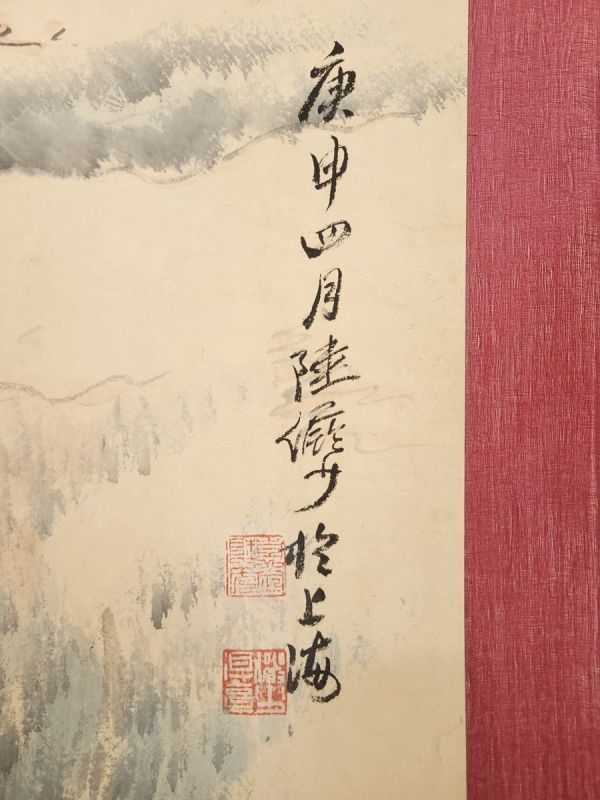 庚申四月陸儼少於上海